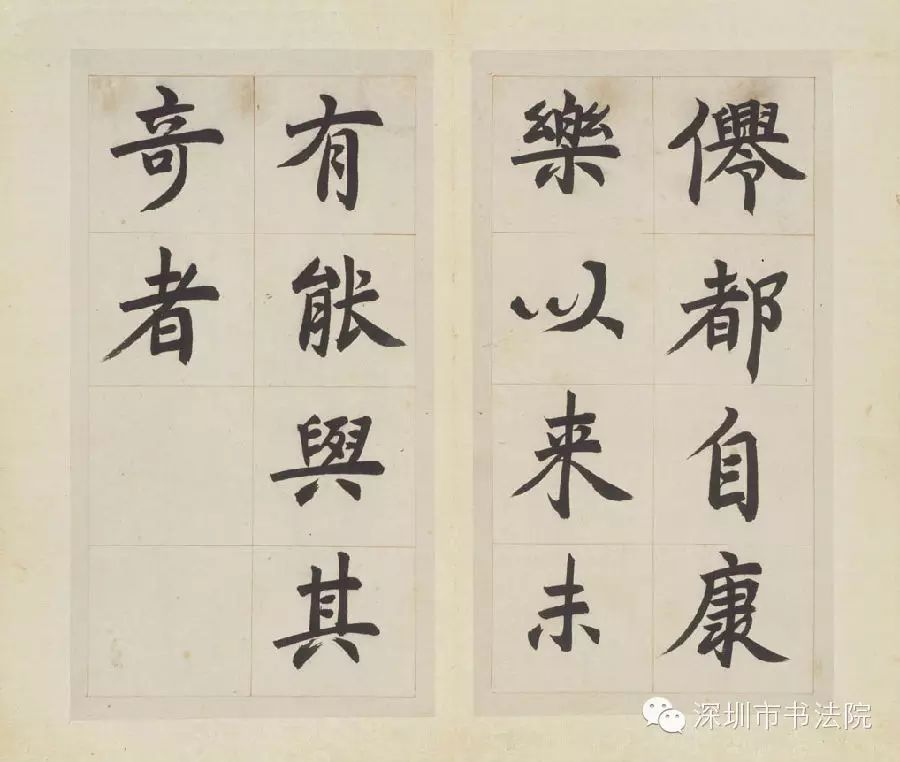 僊都自康
樂以来未
有能與其
奇者
深圳市书法院